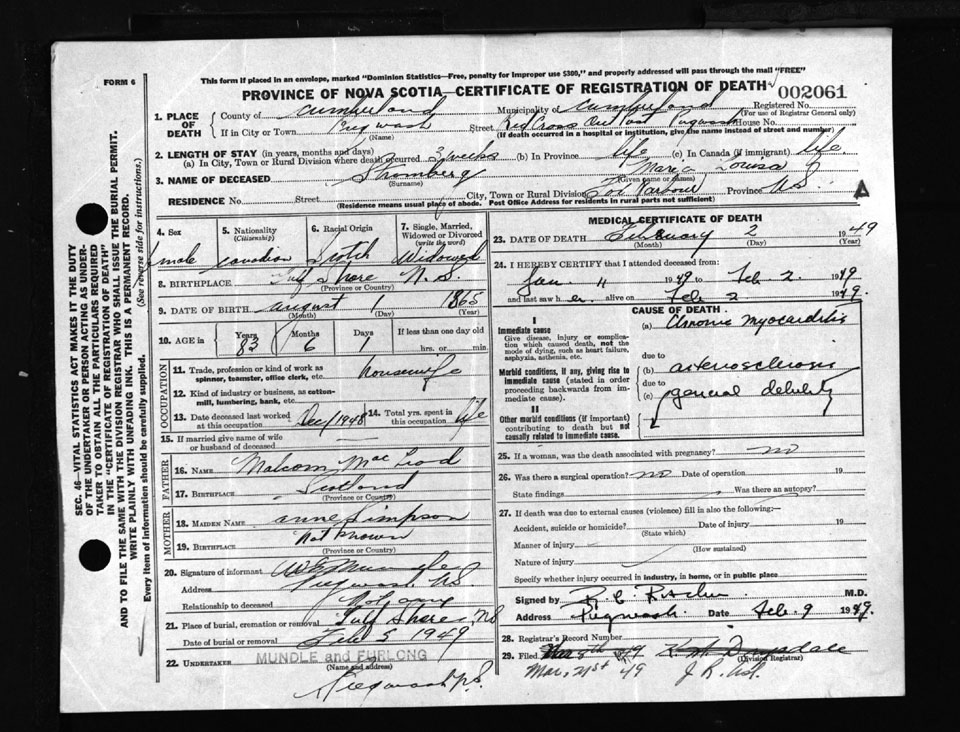 FORM 6
This form if placed in an envelope, marked "Dominion Statistics—Free, penalty for improper use $300," and properly addressed will pass through the mail "FREE"
PROVINCE OF NOVA SCOTIA—CERTIFICATE OF REGISTRATION OF DEATH
002061
1. PLACE OF DEATH
County of Cumberland Municipality of Cumberland Registered No.
(For use of Registrar General only)
If in City or Town Pugwash Street Red Cross Out Post Pugwash House No.
(Name) (If death occurred in a hospital or institution, give the name instead of street and number)
2. LENGTH OF STAY (in years, months and days)
(a) In City, Town or Rural Division where death occurred 3 weeks (b) In Province life (c) In Canada (if immigrant) life.
3. NAME OF DECEASED Stromberg Louisa
(Surname) (Given name or names)
RESIDENCE No. Street City, Town or Rural Division Harbour Province N.S.
(Residence means usual place of abode. Post Office Address for residents in rural parts not sufficient)
A
4. Sex 5. Nationality (Citizenship) 6. Racial Origin 7. Single, Married, Widowed or Divorced (write the word)
male Canadian Scotch Widowed
8. BIRTHPLACE Gulf Shore N.S.
(Province or Country)
9. DATE OF BIRTH August 1 1865
(Month) (Day) (Year)
10. AGE in Years Months Days If less than one day old
83 6 1 hrs. or min.
OCCUPATION
11. Trade, profession or kind of work as spinner, teamster, office clerk, etc. housewife
12. Kind of industry or business, as cotton-mill, lumbering, bank, etc.
13. Date deceased last worked at this occupation Dec/1948 14. Total yrs. spent in this occupation life
15. If married give name of wife or husband of deceased
FATHER
16. NAME Malcom MacLeod
17. BIRTHPLACE Scotland
(Province or Country)
MOTHER
18. MAIDEN NAME Anne Simpson
19. BIRTHPLACE Not known
(Province or Country)
20. Signature of informant
Address Pugwash NS
Relationship to deceased Not any
21. Place of burial, cremation or removal Gulf Shore, NS
Date of burial or removal Feb 5 1949
22. UNDERTAKER MUNDLE and FURLONG
(Name and address)
Pugwash N.S.
MEDICAL CERTIFICATE OF DEATH
23. DATE OF DEATH February 2 1949
(Month) (Day) (Year)
24. I HEREBY CERTIFY that I attended deceased from:
Jan. 11 1949 to Feb. 2 1949
and last saw her alive on Feb 2 1949.
CAUSE OF DEATH
I
Immediate cause
Give disease, injury or complication which caused death, not the mode of dying, such as heart failure, asphyxia, asthenia, etc.
(a) Chronic myocarditis
due to
Morbid conditions, if any, giving rise to immediate cause (stated in order proceeding backwards from immediate cause).
(b) arteriosclerosis
due to
(c) general debility
II
Other morbid conditions (if important) contributing to death but not causally related to immediate cause.
25. If a woman, was the death associated with pregnancy? no
26. Was there a surgical operation? no Date of operation 19
State findings Was there an autopsy?
27. If death was due to external causes (violence) fill in also the following:—
Accident, suicide or homicide? Date of injury 19
(State which)
Manner of injury
(How sustained)
Nature of injury
Specify whether injury occurred in industry, in home, or in public place
Signed by M.D.
Address Pugwash Date Feb. 9 1949.
28. Registrar's Record Number
29. Filed Mar 8th 1949 Drysdale
(Division Registrar)
Mar. 21st 49
SEC. 46—VITAL STATISTICS ACT MAKES IT THE DUTY
OF THE UNDERTAKER OR PERSON ACTING AS UNDER-
TAKER TO OBTAIN ALL THE PARTICULARS REQUIRED
IN THE "CERTIFICATE OF REGISTRATION OF DEATH"
AND TO FILE THE SAME WITH THE DIVISION REGISTRAR WHO SHALL ISSUE THE BURIAL PERMIT.
WRITE PLAINLY WITH UNFADING INK. THIS IS A PERMANENT RECORD.
Every item of Information should be carefully supplied. (See reverse side for instructions.)